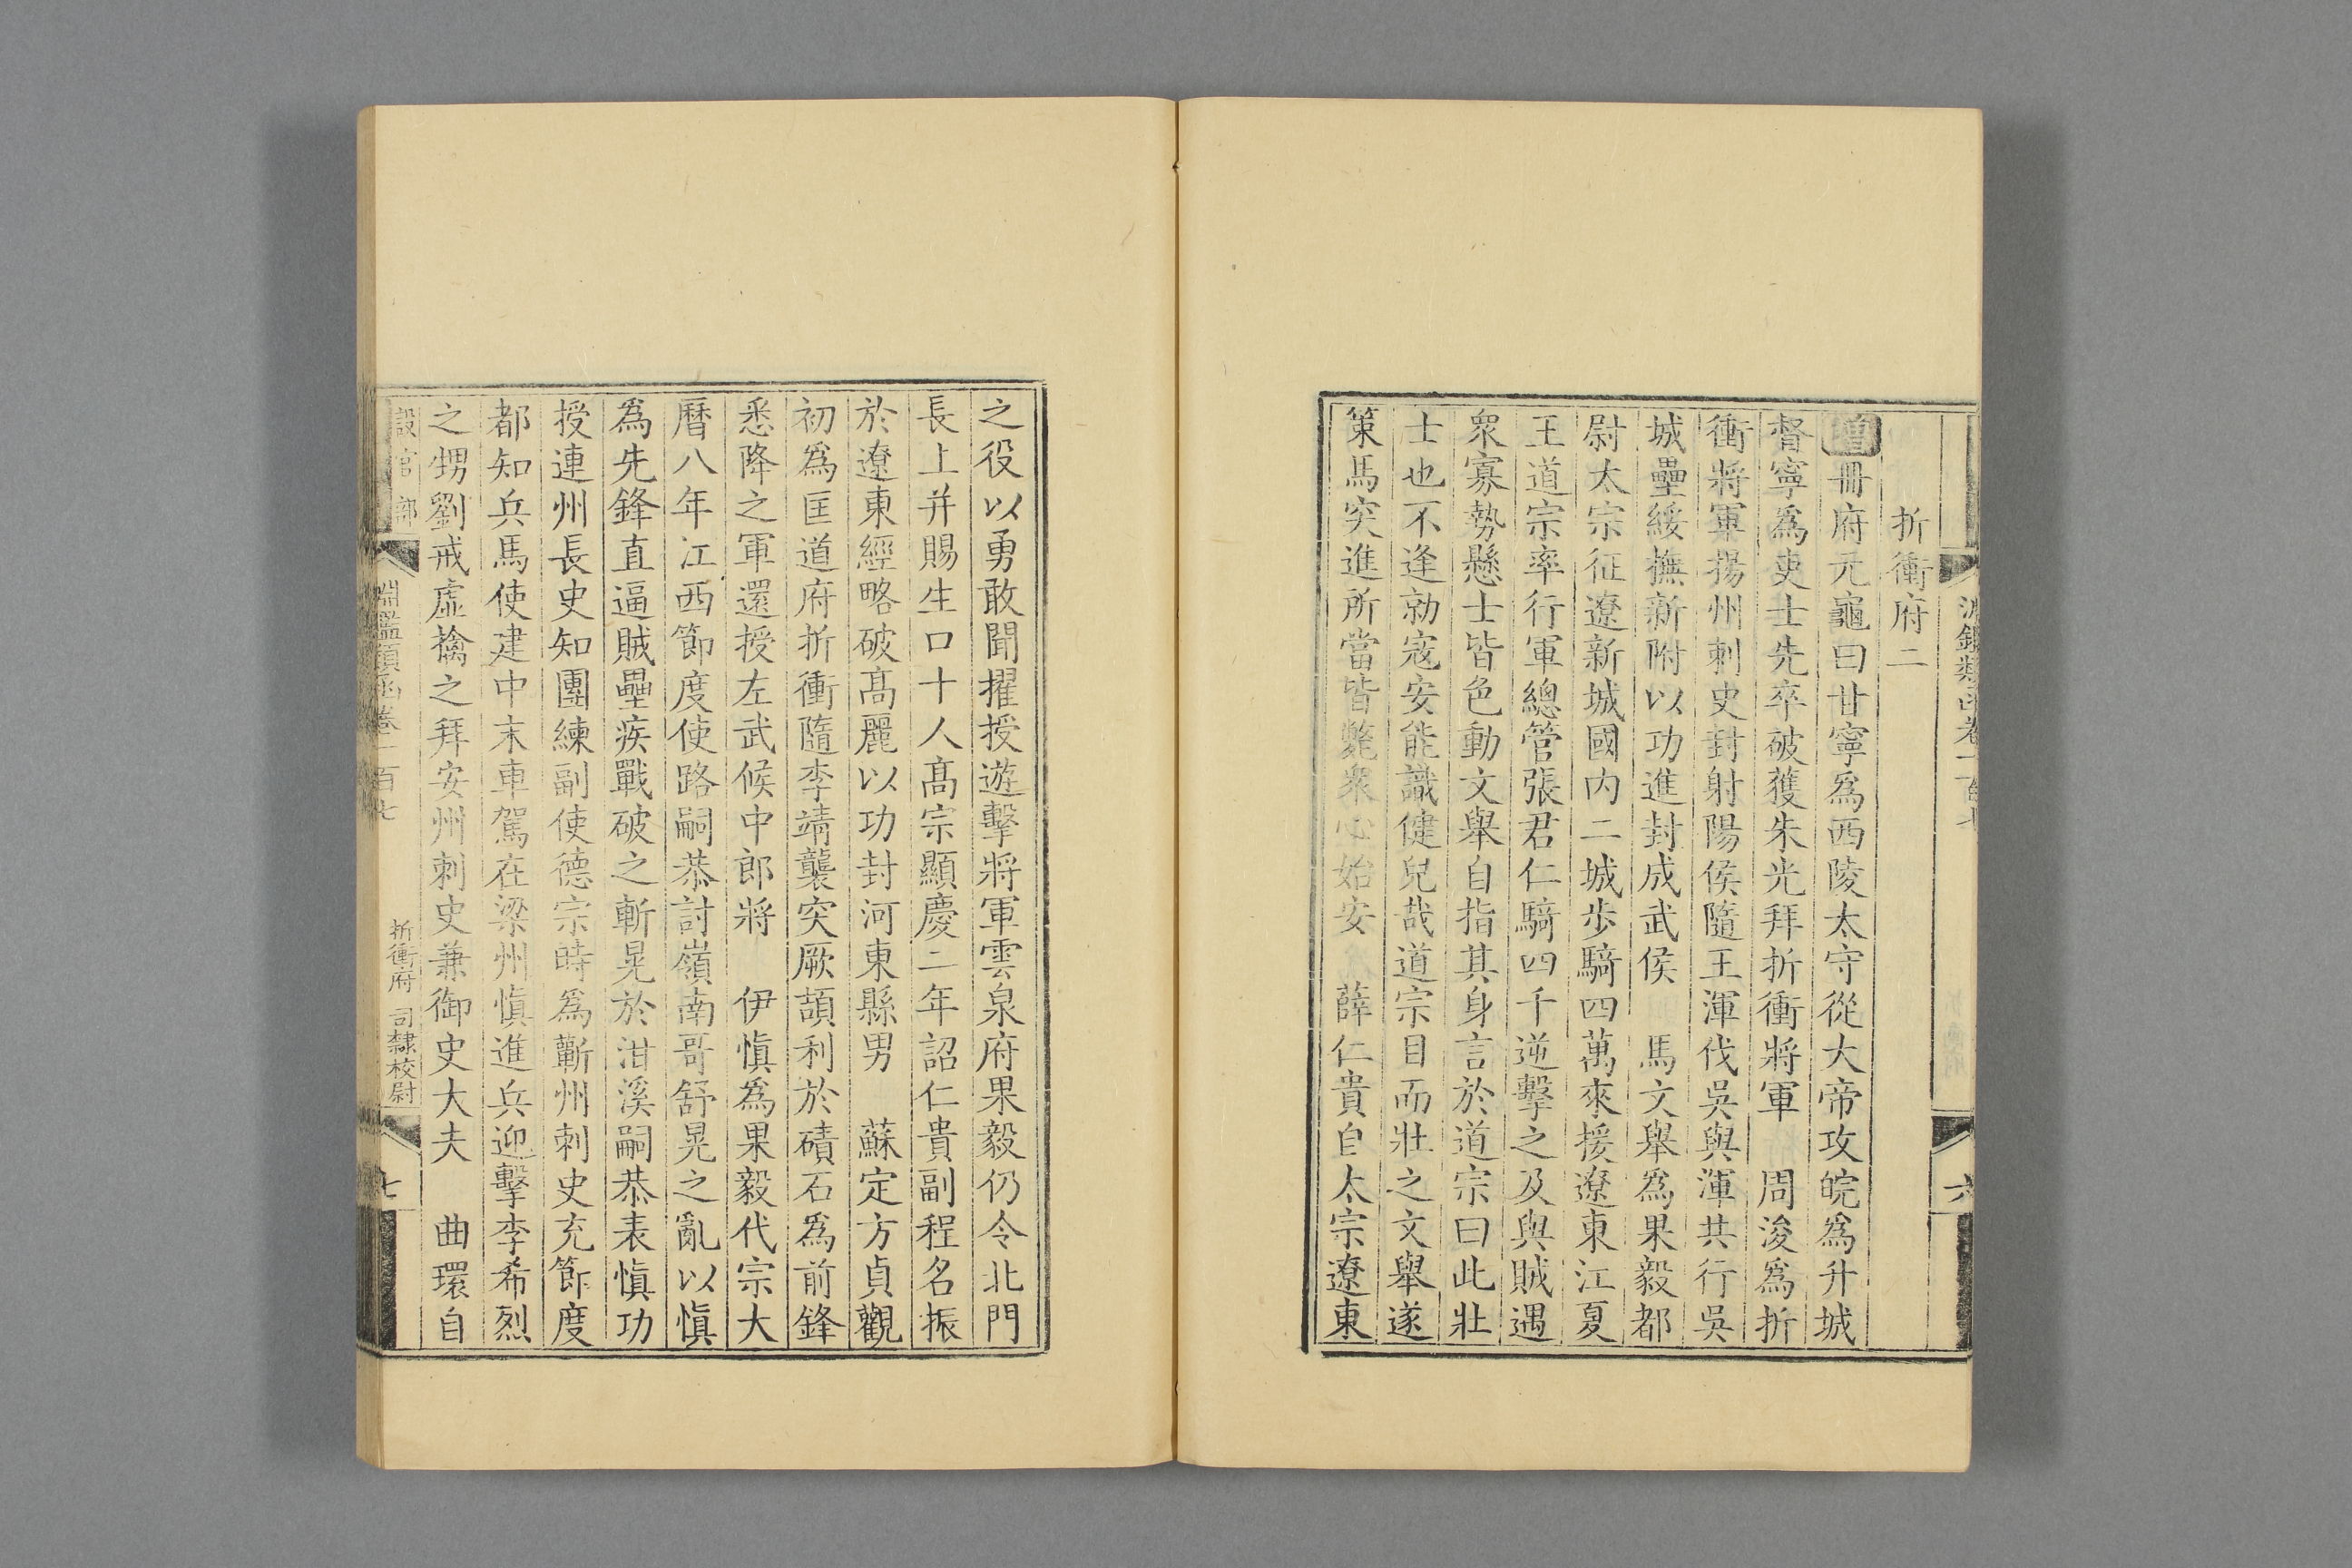 折衝府二
增冊府元龜曰甘寧爲西陵太守從大帝攻皖爲升城
督寧爲吏士先卒破獲朱光拜折衝將軍 周浚爲折
衝將軍揚州刺史封射陽侯隨王渾伐吳與渾共行吳
城壘綏撫新附以功進封成武侯 馬文舉爲果毅都
尉太宗征遼新城國内二城步騎四萬來援遼東江夏
王道宗率行軍總管張君仁騎四千逆擊之及與賊遇
衆寡勢懸士皆色動文舉自指其身言於道宗曰此壯
士也不逢勍寇安能識健兒哉道宗目而壯之文舉遂
策馬突進所當皆斃衆心始安 薛仁貴自太宗遼東
之役以勇敢聞擢授遊擊將軍雲泉府果毅仍令北門
長上并賜生口十人高宗顯慶二年詔仁貴副程名振
於遼東經略破高麗以功封河東縣男 蘇定方貞觀
初爲匡道府折衝隨李靖襲突厥頡利於磧石爲前鋒
悉降之軍還授左武候中郎將 伊愼爲果毅代宗大
曆八年江西節度使路嗣恭討嶺南哥舒晃之亂以愼
爲先鋒直逼賊壘疾戰破之斬晃於泔溪嗣恭表愼功
授連州長史知團練副使德宗時爲蘄州刺史充節度
都知兵馬使建中末車駕在梁州愼進兵迎擊李希烈
之甥劉戒虛擒之拜安州刺史兼御史大夫 曲環自
設官部
淵鑑類函卷一百七
折衝府 司隸校尉
七